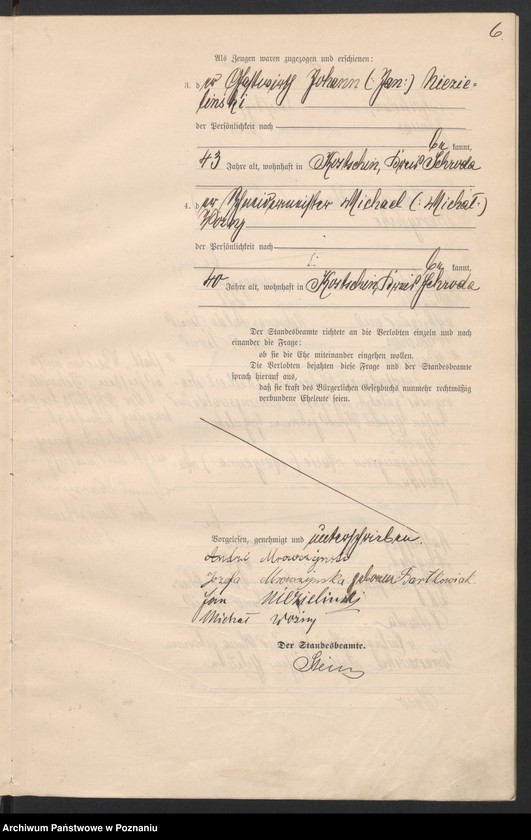 6.
Als Zeugen waren zugezogen und erschienen:
3. der Gastwirth Johann (: Jan :) Niezie=
linski
der Persönlichkeit nach
be kannt,
43 Jahre alt, wohnhaft in Kostschin, Kreis Schroda
4. der Schneidermeister Michael (: Michał :)
Wozny
der Persönlichkeit nach
be kannt,
40 Jahre alt, wohnhaft in Kostschin, Kreis Schroda
Der Standesbeamte richtete an die Verlobten einzeln und nach
einander die Frage:
ob sie die Ehe miteinander eingehen wollen.
Die Verlobten bejahten diese Frage und der Standesbeamte
sprach hierauf aus,
daß sie kraft des Bürgerlichen Gesetzbuchs nunmehr rechtmäßig
verbundene Eheleute seien.
Vorgelesen, genehmigt und unterschrieben.
Józefa geborene Bartkowiak
Jan Niezielinski
Michał Wozny
Der Standesbeamte.
Archiwum Państwowe w Poznaniu